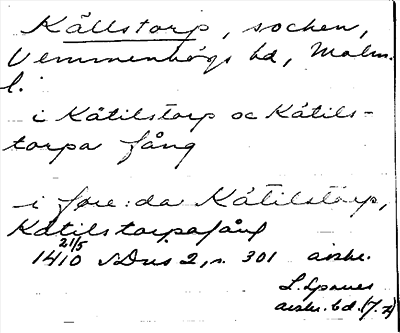 Källstorp, socken,
Vemmenhögs hd, Malm.
l.
i Kätilstorp oc Kätils-
torpa fång
i före: da Kätilstorp,
Kätilstorpafång
21/5
1410 SDns 2, s. 301 avskr.
avskr. b d. (7.